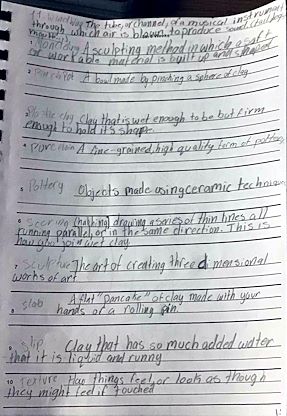 11. Windway The tube, or channel, of a musical instrument
through which air is blown, to produce sound (also called
mouth)
1 Modeling A sculpting method in which a soft
or workable material is built up and shaped
2 Pinch Pot A bowl made by pinching a sphere of clay
3 Plastic clay Clay that is wet enough to be but firm
enough to hold it's shape.
4 Porcelain A fine-grained, high quality form of pottery
5 Pottery Objects made using ceramic techniques
6 Scoring (hatching) drawing a series of thin lines all
running parallel, or in the same direction. This is
how you join wet clay
7 Sculpture The art of creating three dimensional
works of art
8 Slab A flat "pancake" of clay made with your
hands or a rolling pin.
9 Slip Clay that has so much added water
that it is liquid and runny
10 Texture How things feel, or look as though
they might feel if touched